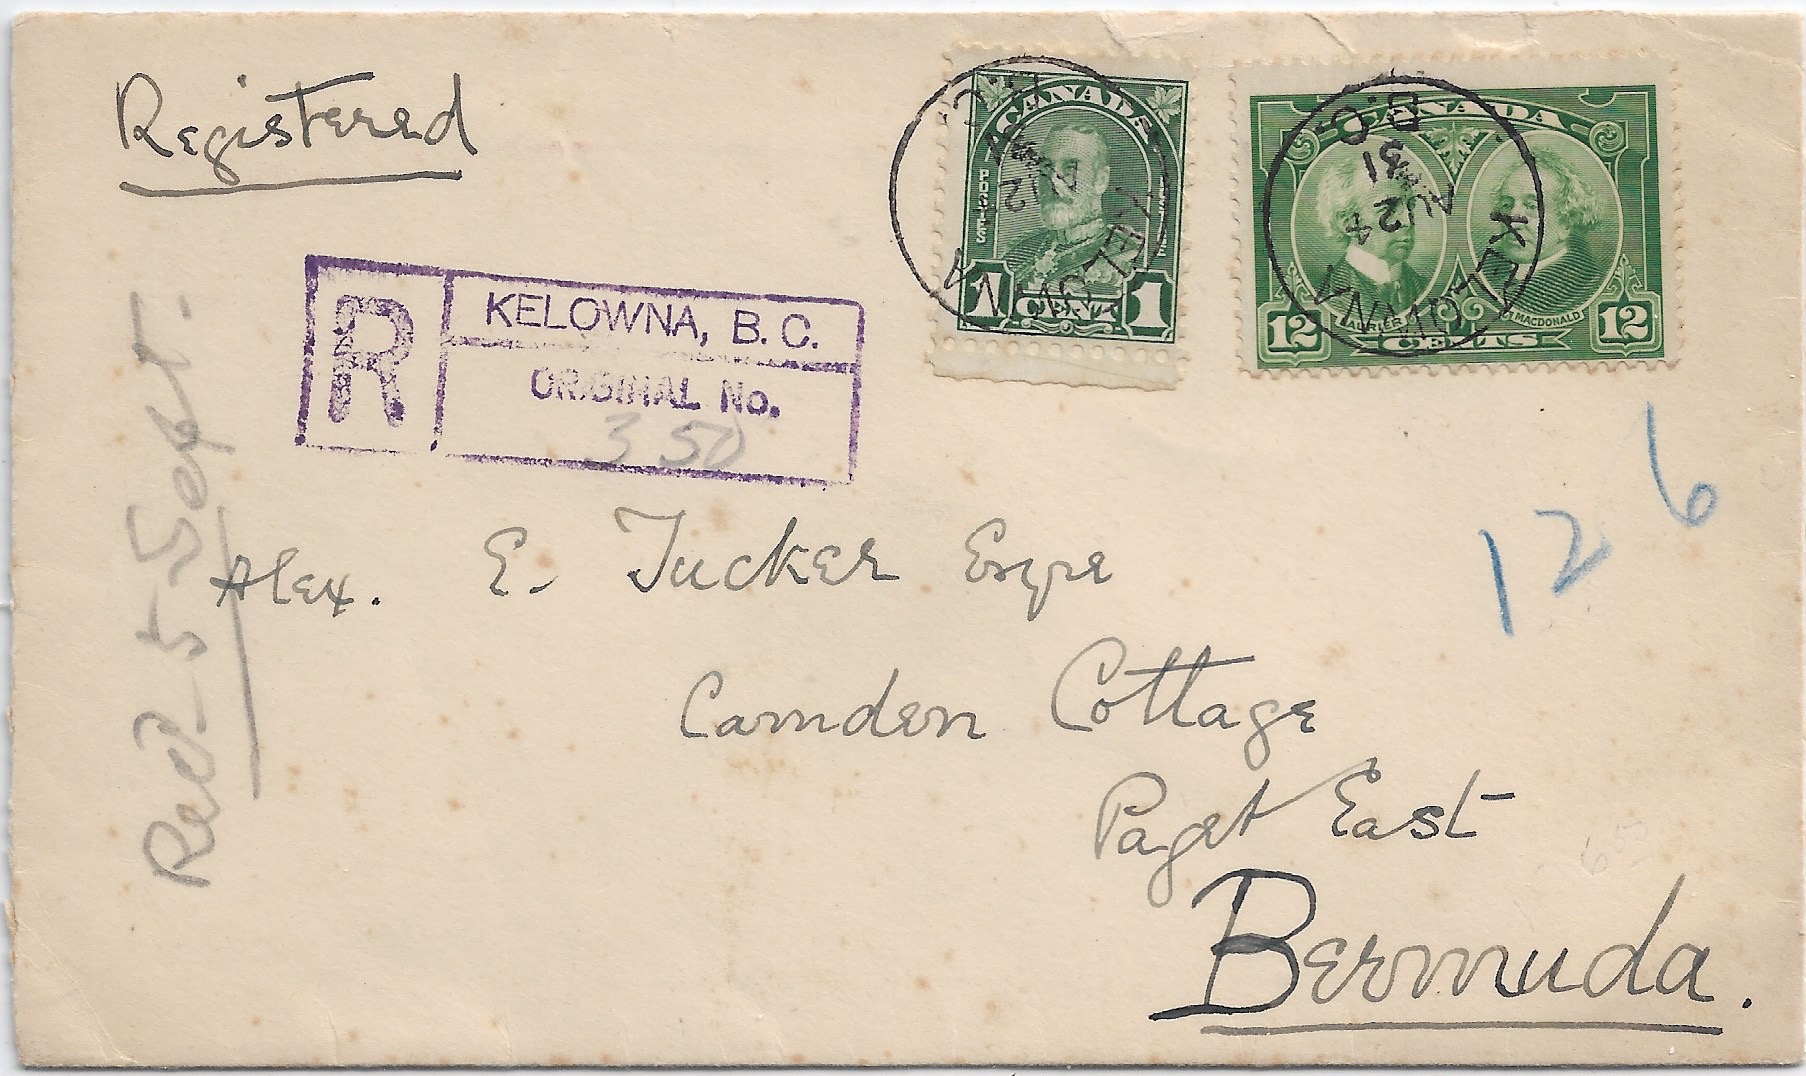 Registered
CANADA
POSTES
1 CENT 1
CANADA
LAURIER MACDONALD
12 CENTS 12
KELOWNA
B.C.
KELOWNA
B.C.
31
R
KELOWNA, B. C.
ORIGINAL No.
350
6
12
Rec'd - 5 Sept.
Alex. E. Tucker Esqre
Camden Cottage
Paget East
Bermuda.